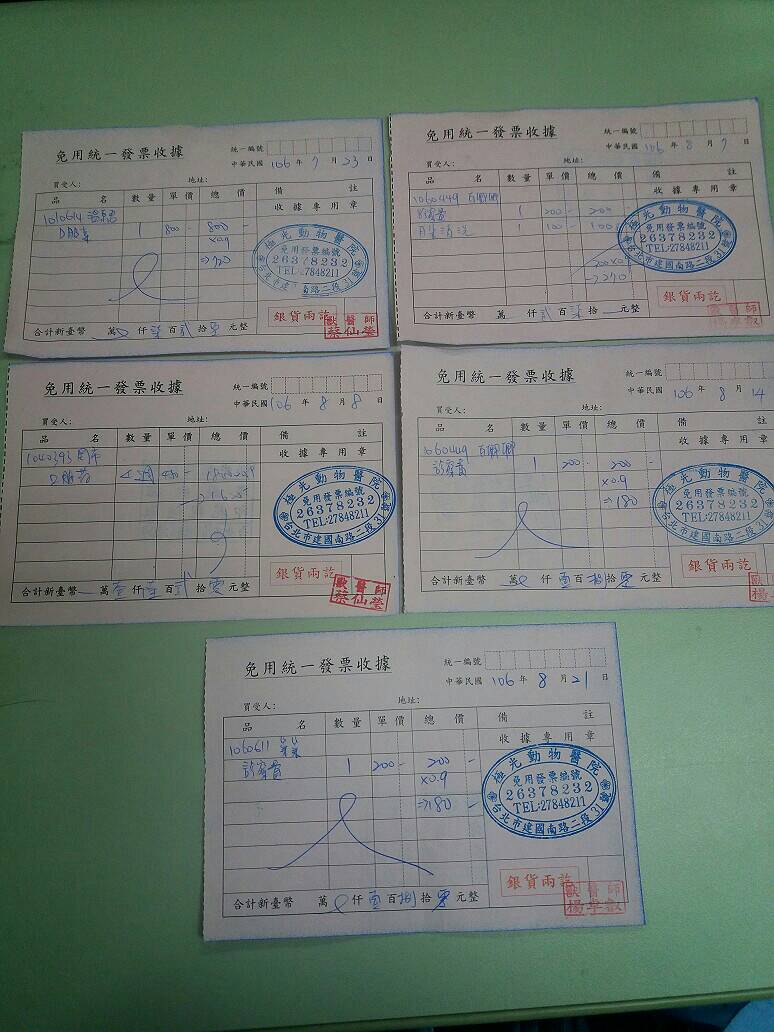 免用統一發票收據
統一編號
中華民國 106 年 7 月 23 日
買受人: 地址:
品 名 數量 單價 總 價 備 註
收據專用章
1010614
1 800- 800-
×0.9
⇒720
極光動物醫院
免用發票編號
26378232
TEL:27848211
台北市建國南路二段31號
銀貨兩訖
獸醫師
蔡仙瑩
合計新臺幣 萬 仟 柒 百 貳 拾 零 元整
免用統一發票收據
統一編號
中華民國 106 年 8 月 7 日
買受人: 地址:
品 名 數量 單價 總 價 備 註
收據專用章
1060449
診察費 1 200- 200-
清洗 1 100- 100-
300×0.9
⇒270
極光動物醫院
免用發票編號
26378232
TEL:27848211
台北市建國南路二段31號
銀貨兩訖
獸醫師
合計新臺幣 萬 仟 貳 百 柒 拾 元整
免用統一發票收據
統一編號
中華民國 106 年 8 月 8 日
買受人: 地址:
品 名 數量 單價 總 價 備 註
收據專用章
1040393
極光動物醫院
免用發票編號
26378232
TEL:27848211
台北市建國南路二段31號
銀貨兩訖
獸醫師
蔡仙瑩
合計新臺幣 萬 壹 仟 百 貳 拾 零 元整
免用統一發票收據
統一編號
中華民國 106 年 8 月 14
買受人: 地址:
品 名 數量 單價 總 價 備 註
收據專用章
1060449
診察費 1 200- 200-
×0.9
⇒180
極光動物醫院
免用發票編號
26378232
TEL:27848211
台北市建國南路二段31
銀貨兩訖
合計新臺幣 萬 仟 壹 百 捌 拾 零 元整
免用統一發票收據
統一編號
中華民國 106 年 8 月 21 日
買受人: 地址:
品 名 數量 單價 總 價 備 註
收據專用章
1060611
診察費 1 200- 200-
×0.9
⇒180-
極光動物醫院
免用發票編號
26378232
TEL:27848211
台北市建國南路二段31號
銀貨兩訖
獸醫師
合計新臺幣 萬 仟 壹 百 捌 拾 零 元整